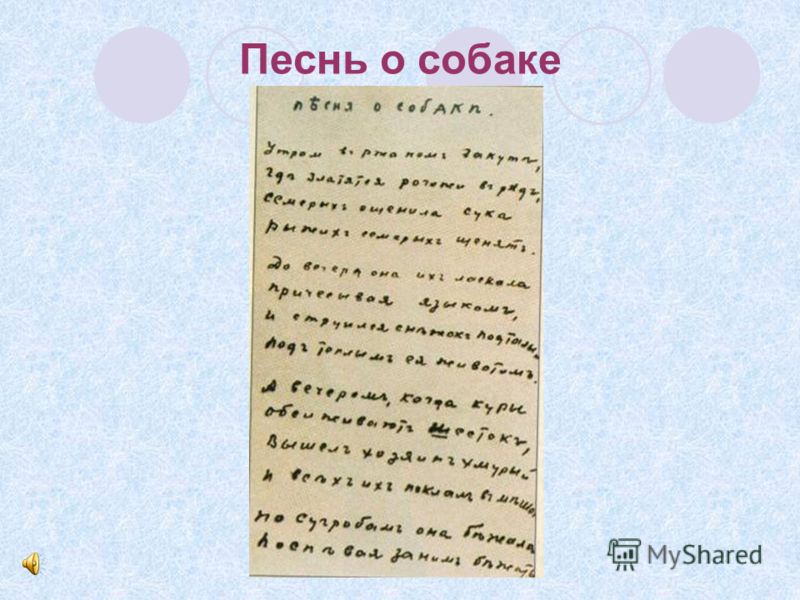 Песнь о собаке
пѣсня о собакѣ.
Утром въ ржаномъ закутѣ,
гдѣ златятся рогожи въ рядъ,
семерыхъ ощенила сука
рыжихъ семерыхъ щенятъ.
До вечера она ихъ ласкала
причесывая языкомъ,
и струился снѣжокъ подталый
подъ теплымъ ея животомъ.
А вечеромъ, когда куры
обсиживаютъ шестокъ,
Вышелъ хозяинъ хмурый
и всѣхъ ихъ поклалъ въ мѣшок
по сугробамъ она бѣжала
поспѣвая за нимъ бѣжать
MyShared